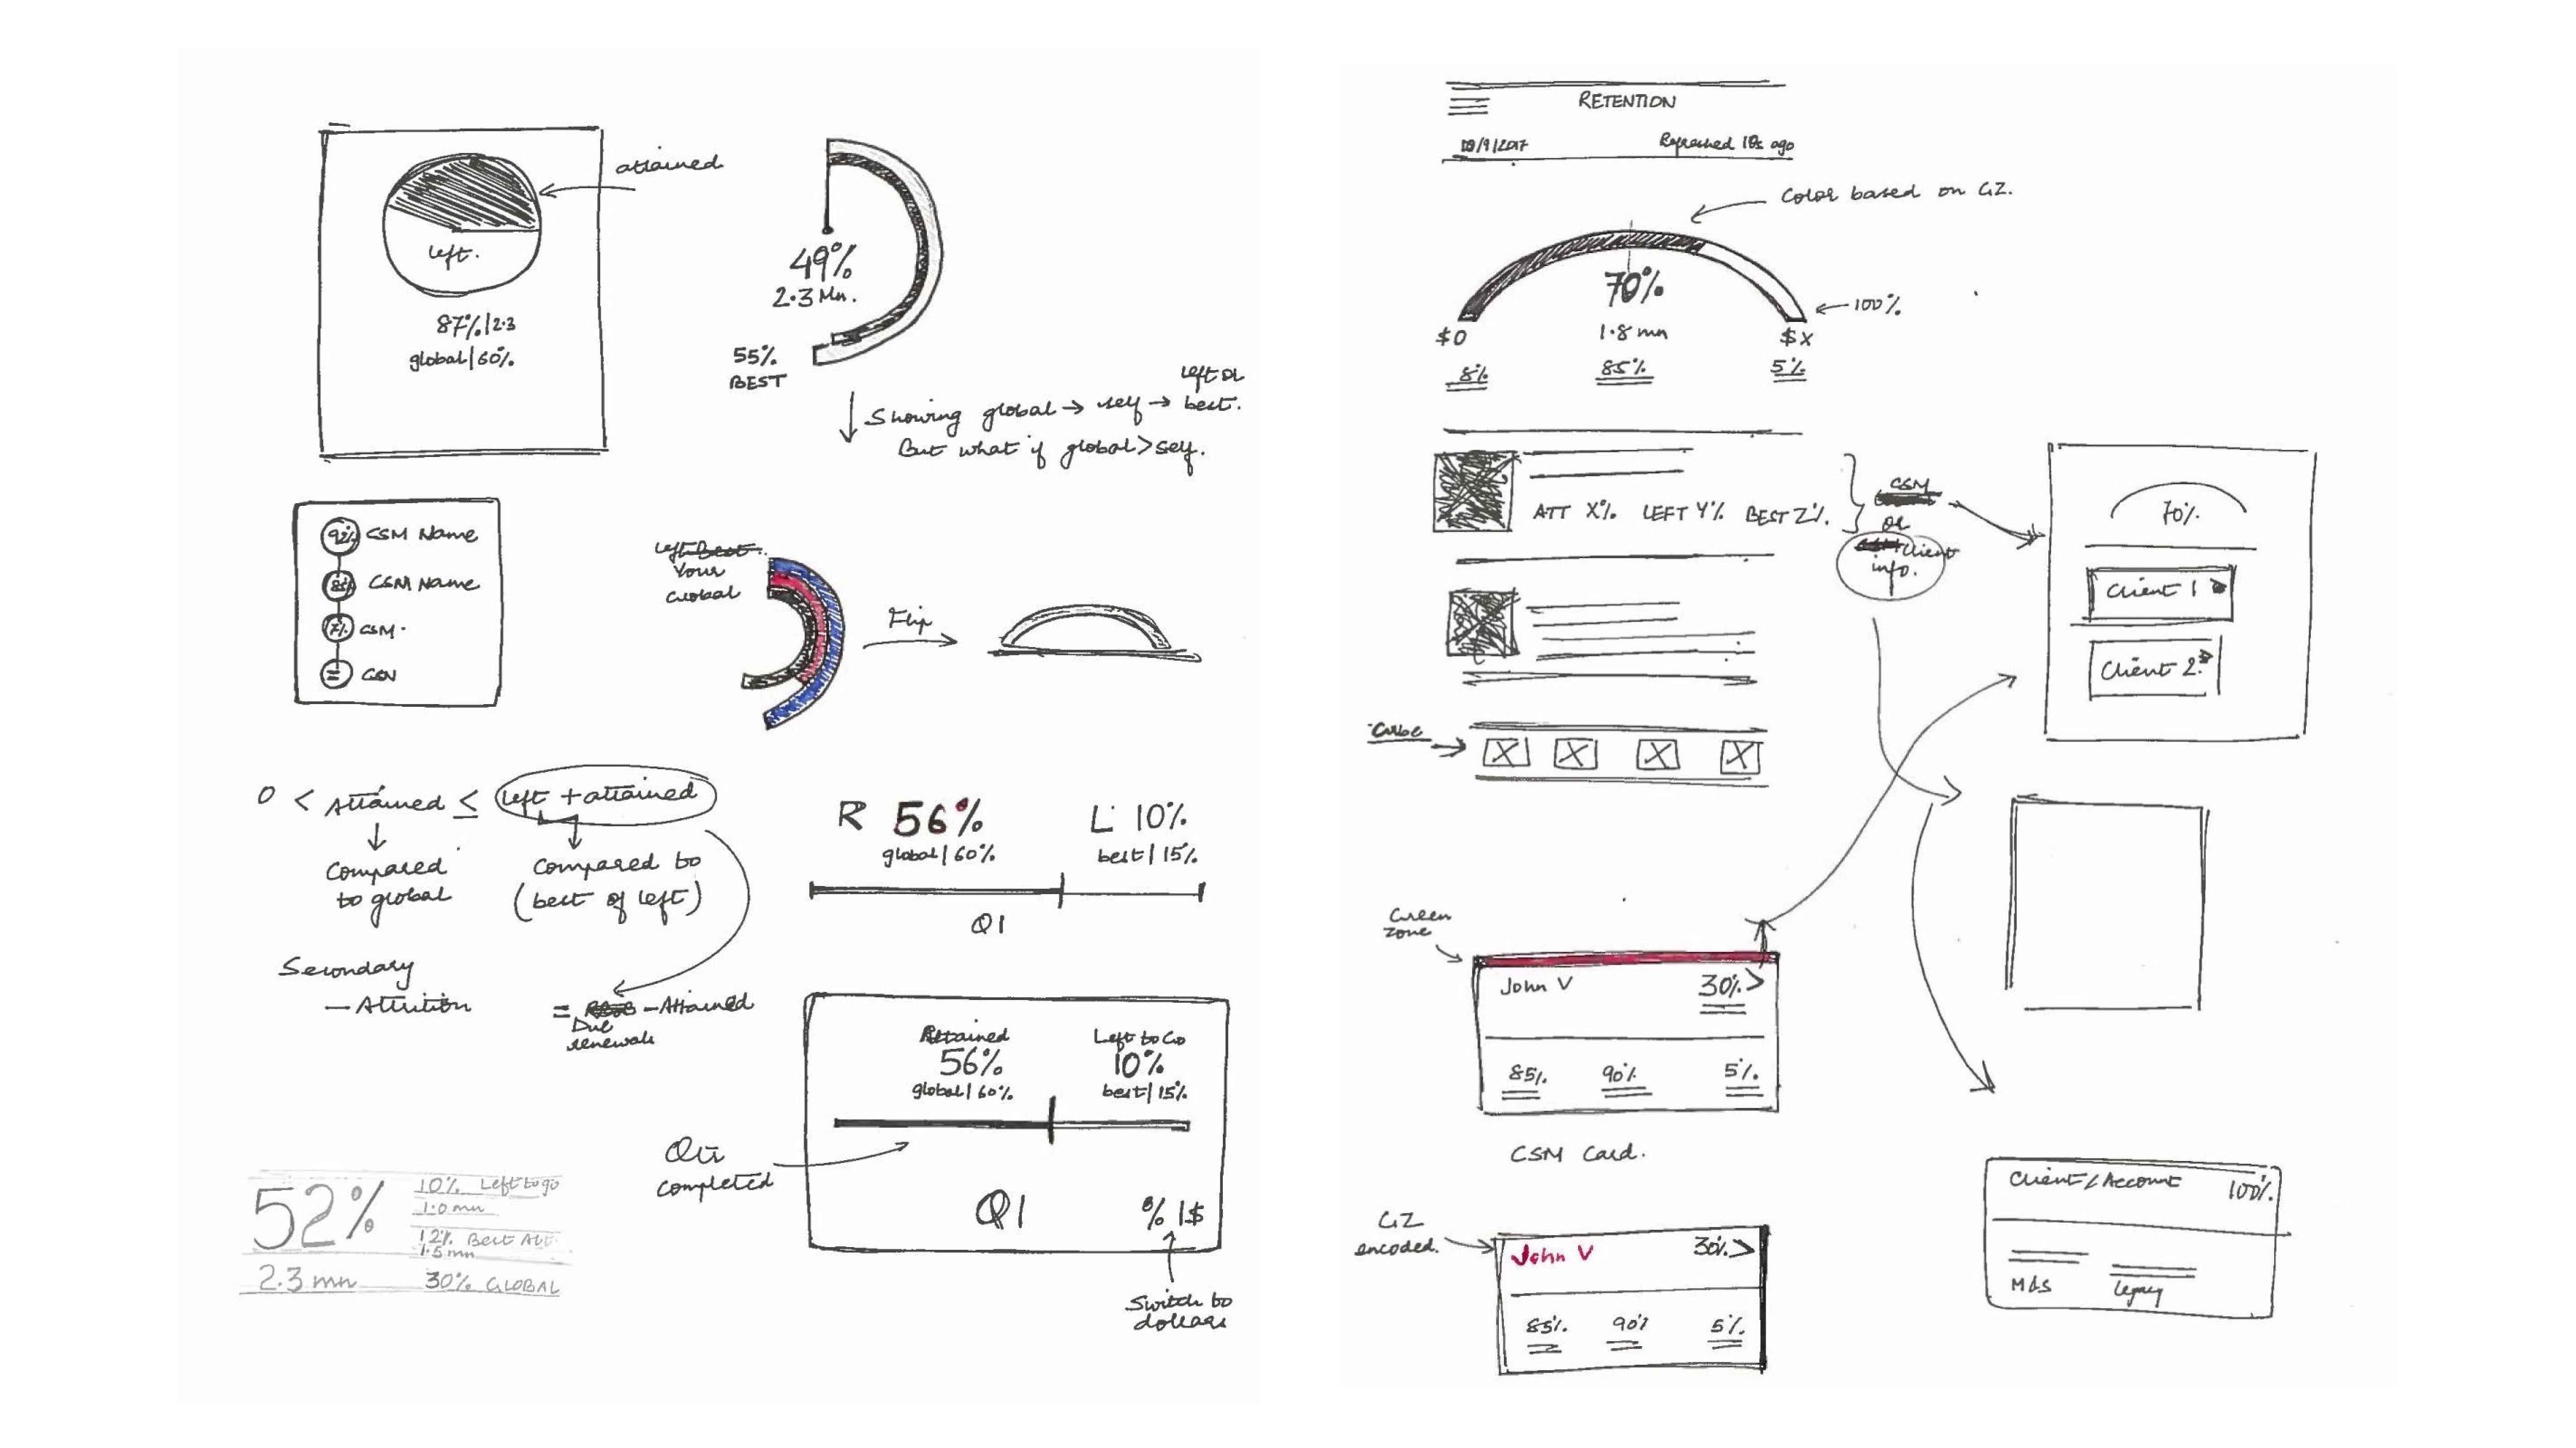 attained
left.
87%|2.3
global|60%
49%
2.3 Mn.
55%
BEST
left or
Showing global → self → best.
But what if global > self.
92% CSM Name
88% CSM Name
7% CSM.
CSM
Your
Global
Flip
0 < Attained ≤ left + attained
Compared
to global
Compared to
(best of left)
Secondary
– Attrition
= – Attained
Due
renewals
R 56%
global|60%
L 10%
best|15%
Q1
Attained
56%
global|60%
Left to Go
10%
best|15%
Qtr
completed
Q1
%|$
Switch to
dollars
52%
2.3 mn
10% Left to go
1.0 mn
12% Best Att.
1.5 mn
30% GLOBAL
RETENTION
Refreshed 10s ago
Color based on GZ.
70%
1.8 mn
100%
$0
$X
8%
85%
5%
ATT X% LEFT Y% BEST Z%
CSM
or
Client
info.
70%
Client 1
Client 2
Cube
Green
zone
John V
30% >
85%
90%
5%
CSM Card.
GZ
encoded.
John V
30% >
85%
90%
5%
Client/Account
100%
M&S
Legacy